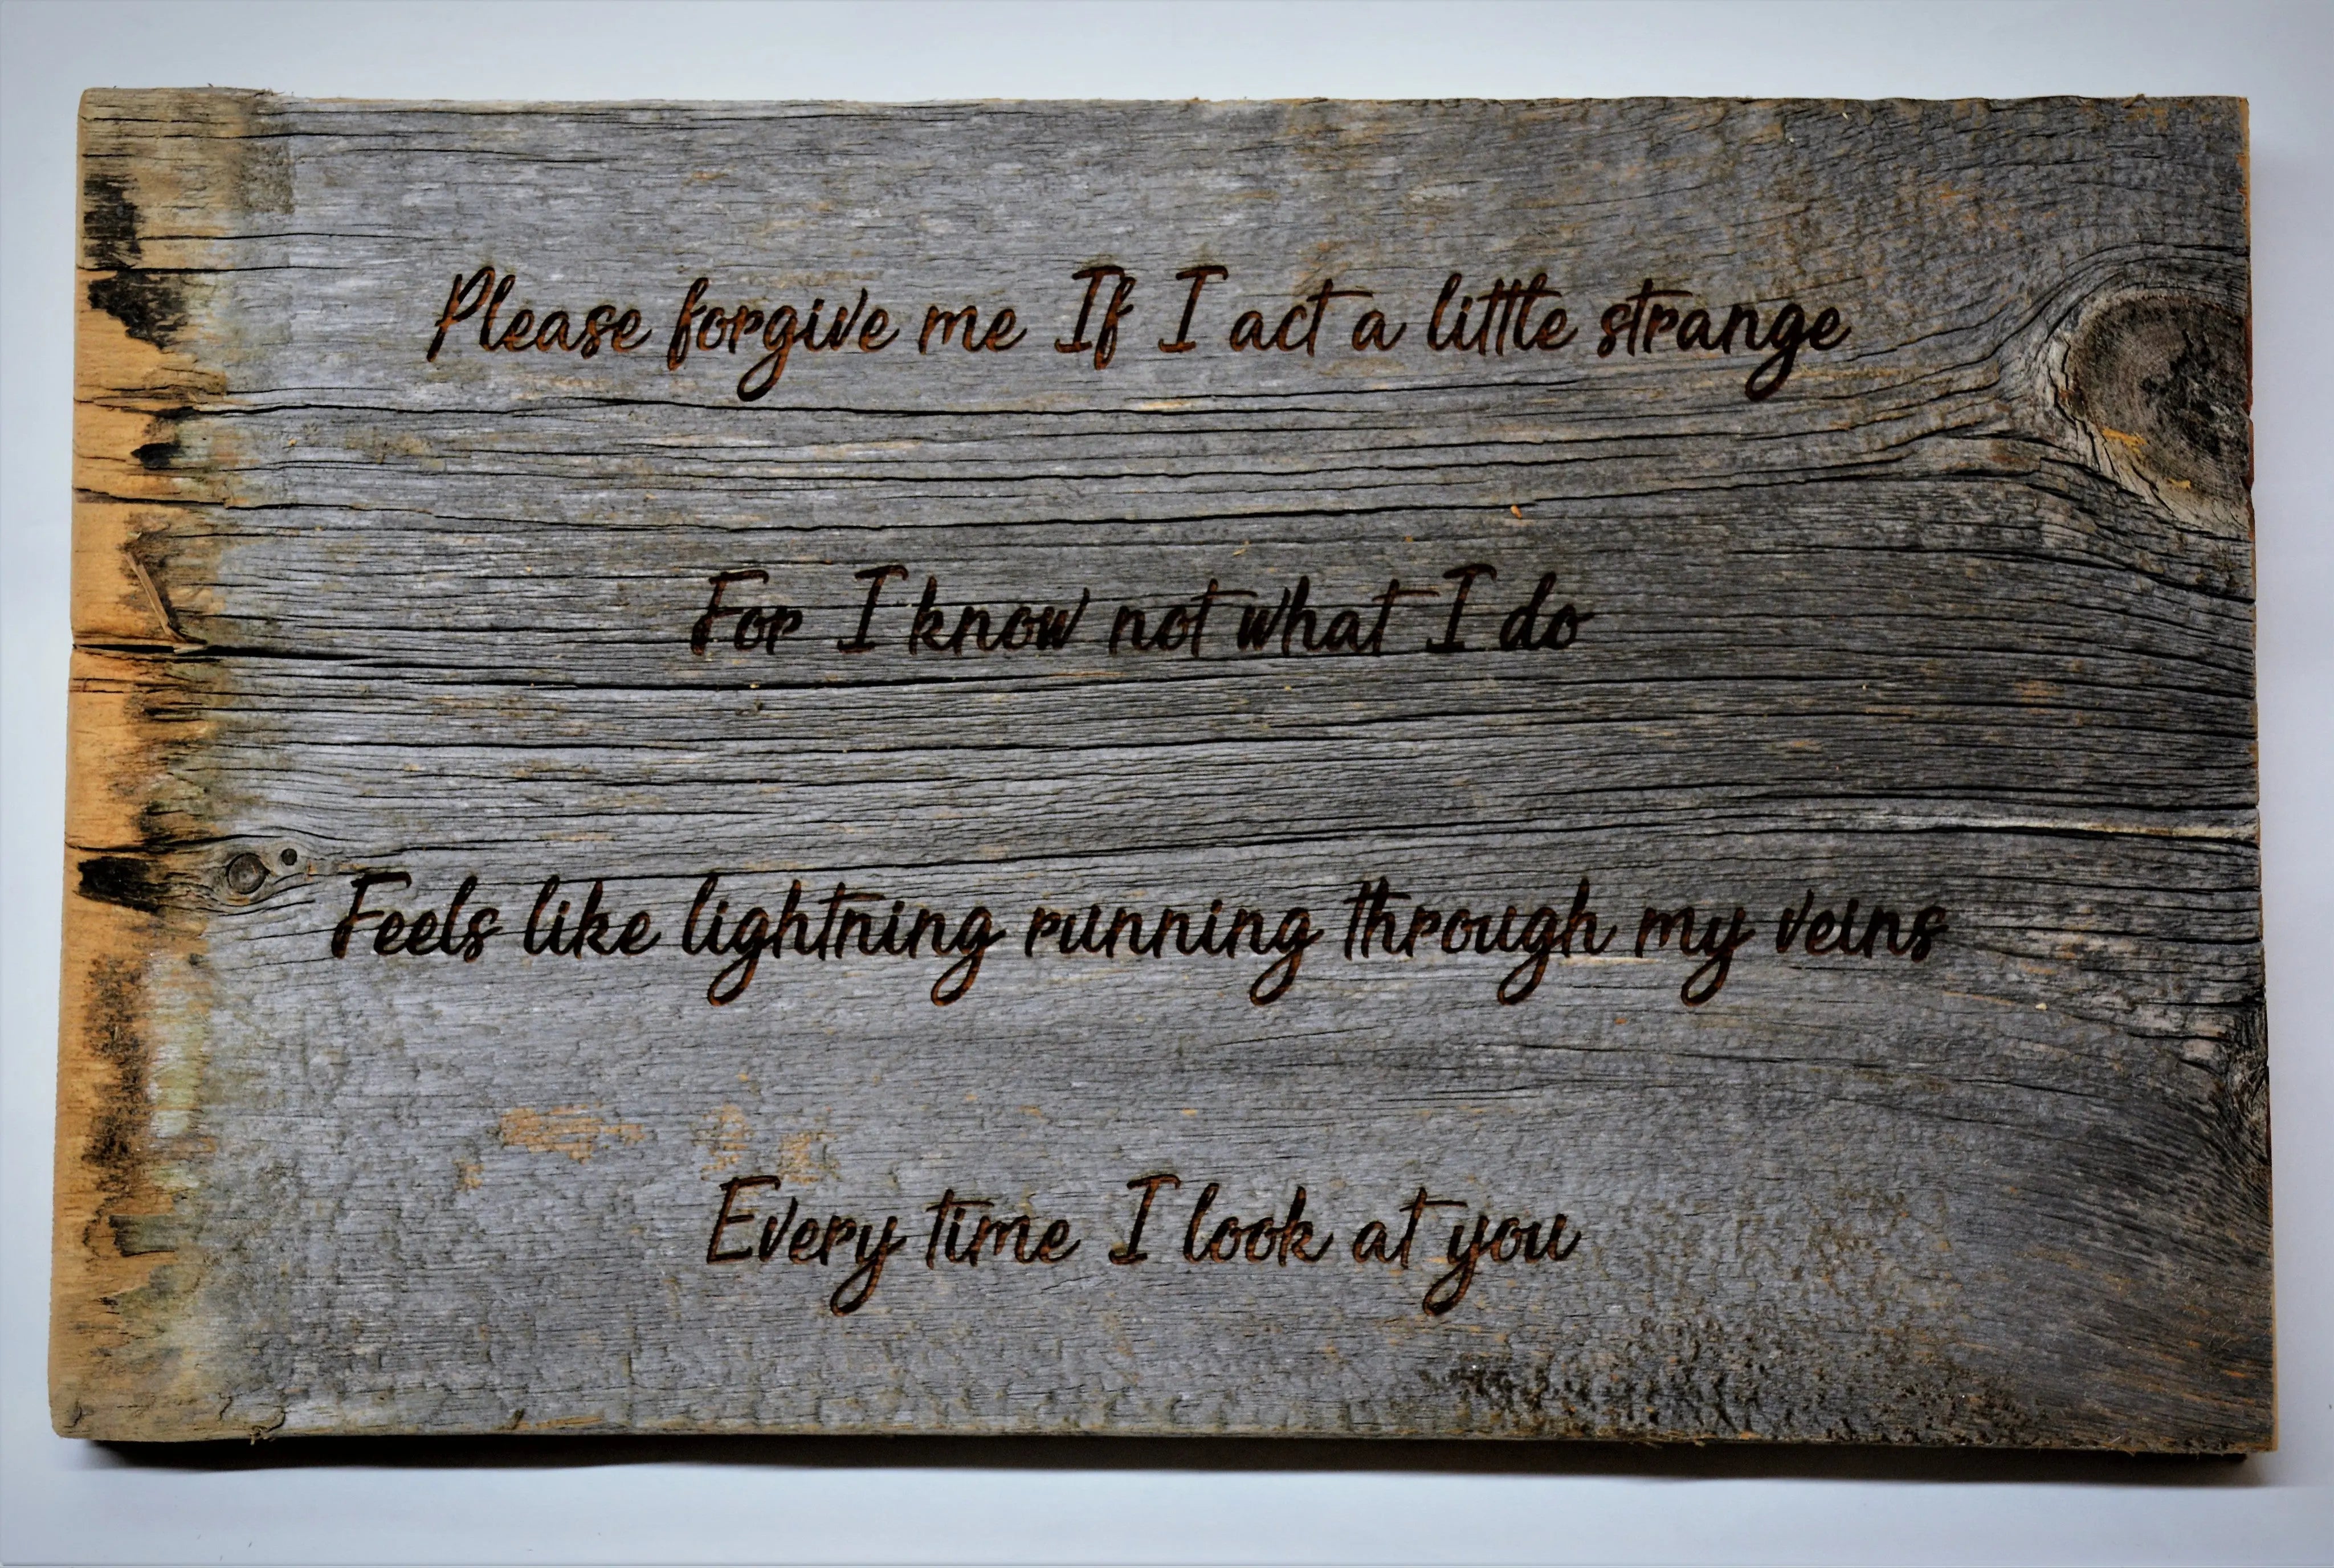 Please forgive me If I act a little strange
For I know not what I do
Feels like lightning running through my veins
Every time I look at you